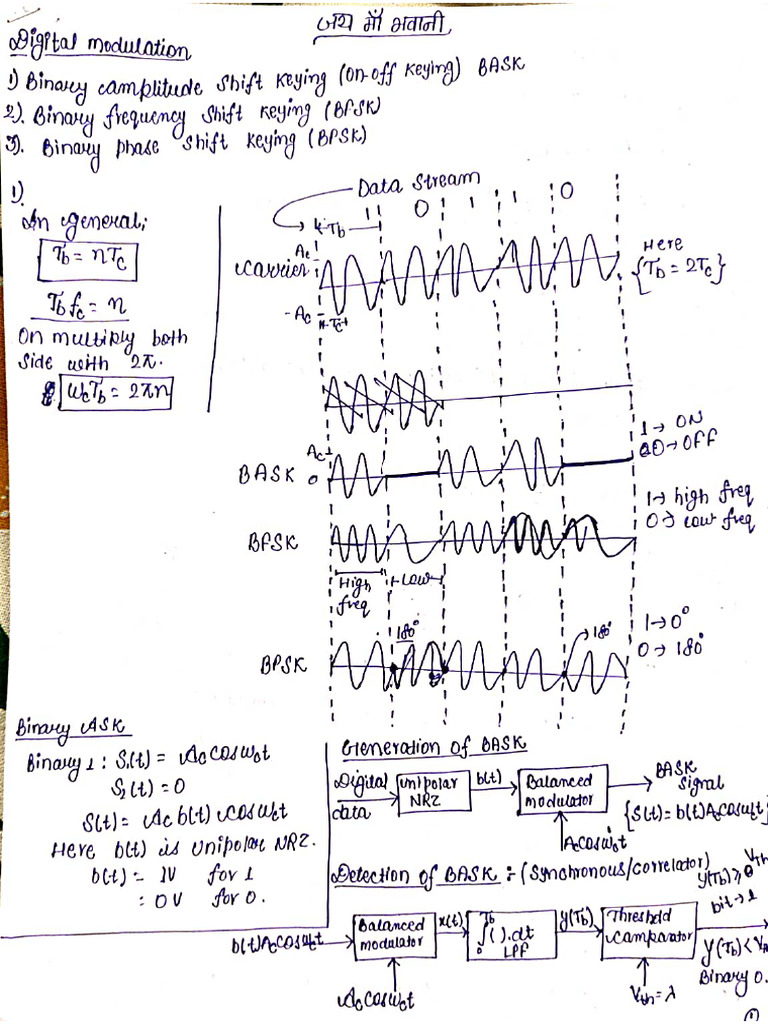 जय माँ भवानी
Digital modulation
1) Binary amplitude shift keying (on-off keying) BASK
2). Binary frequency shift keying (BFSK)
3). Binary phase shift keying (BPSK)
1).
In general;
Tb = nTc
Tb fc = n
On multiply both
side with 2π.
ωcTb = 2πn
Data stream
1 0 1 1 0
Tb
Ac
Carrier
-Ac
Tc
Here
{Tb = 2Tc}
Ac
BASK
0
1 → ON
0 → OFF
BFSK
1 → high freq
0 → low freq
High
freq
Low
BPSK
180°
180°
1 → 0°
0 → 180°
Binary ASK
Binary 1 : S1(t) = Ac cosωct
S2(t) = 0
S(t) = Ac b(t) cosωct
Here b(t) is unipolar NRZ.
b(t) = 1V for 1
: 0V for 0.
Generation of BASK
Digital
data
unipolar
NRZ
b(t)
Balanced
modulator
BASK
signal
{S(t) = b(t)Accosωct}
Accosωct
Detection of BASK :- (Synchronous/correlator)
b(t)Accosωct
Balanced
modulator
x(t)
Tb
∫( ).dt
0
LPF
y(Tb)
Threshold
comparator
Accosωct
Vth = λ
y(Tb) ≥ Vth
bit → 1
y(Tb) < Vth
Binary 0.